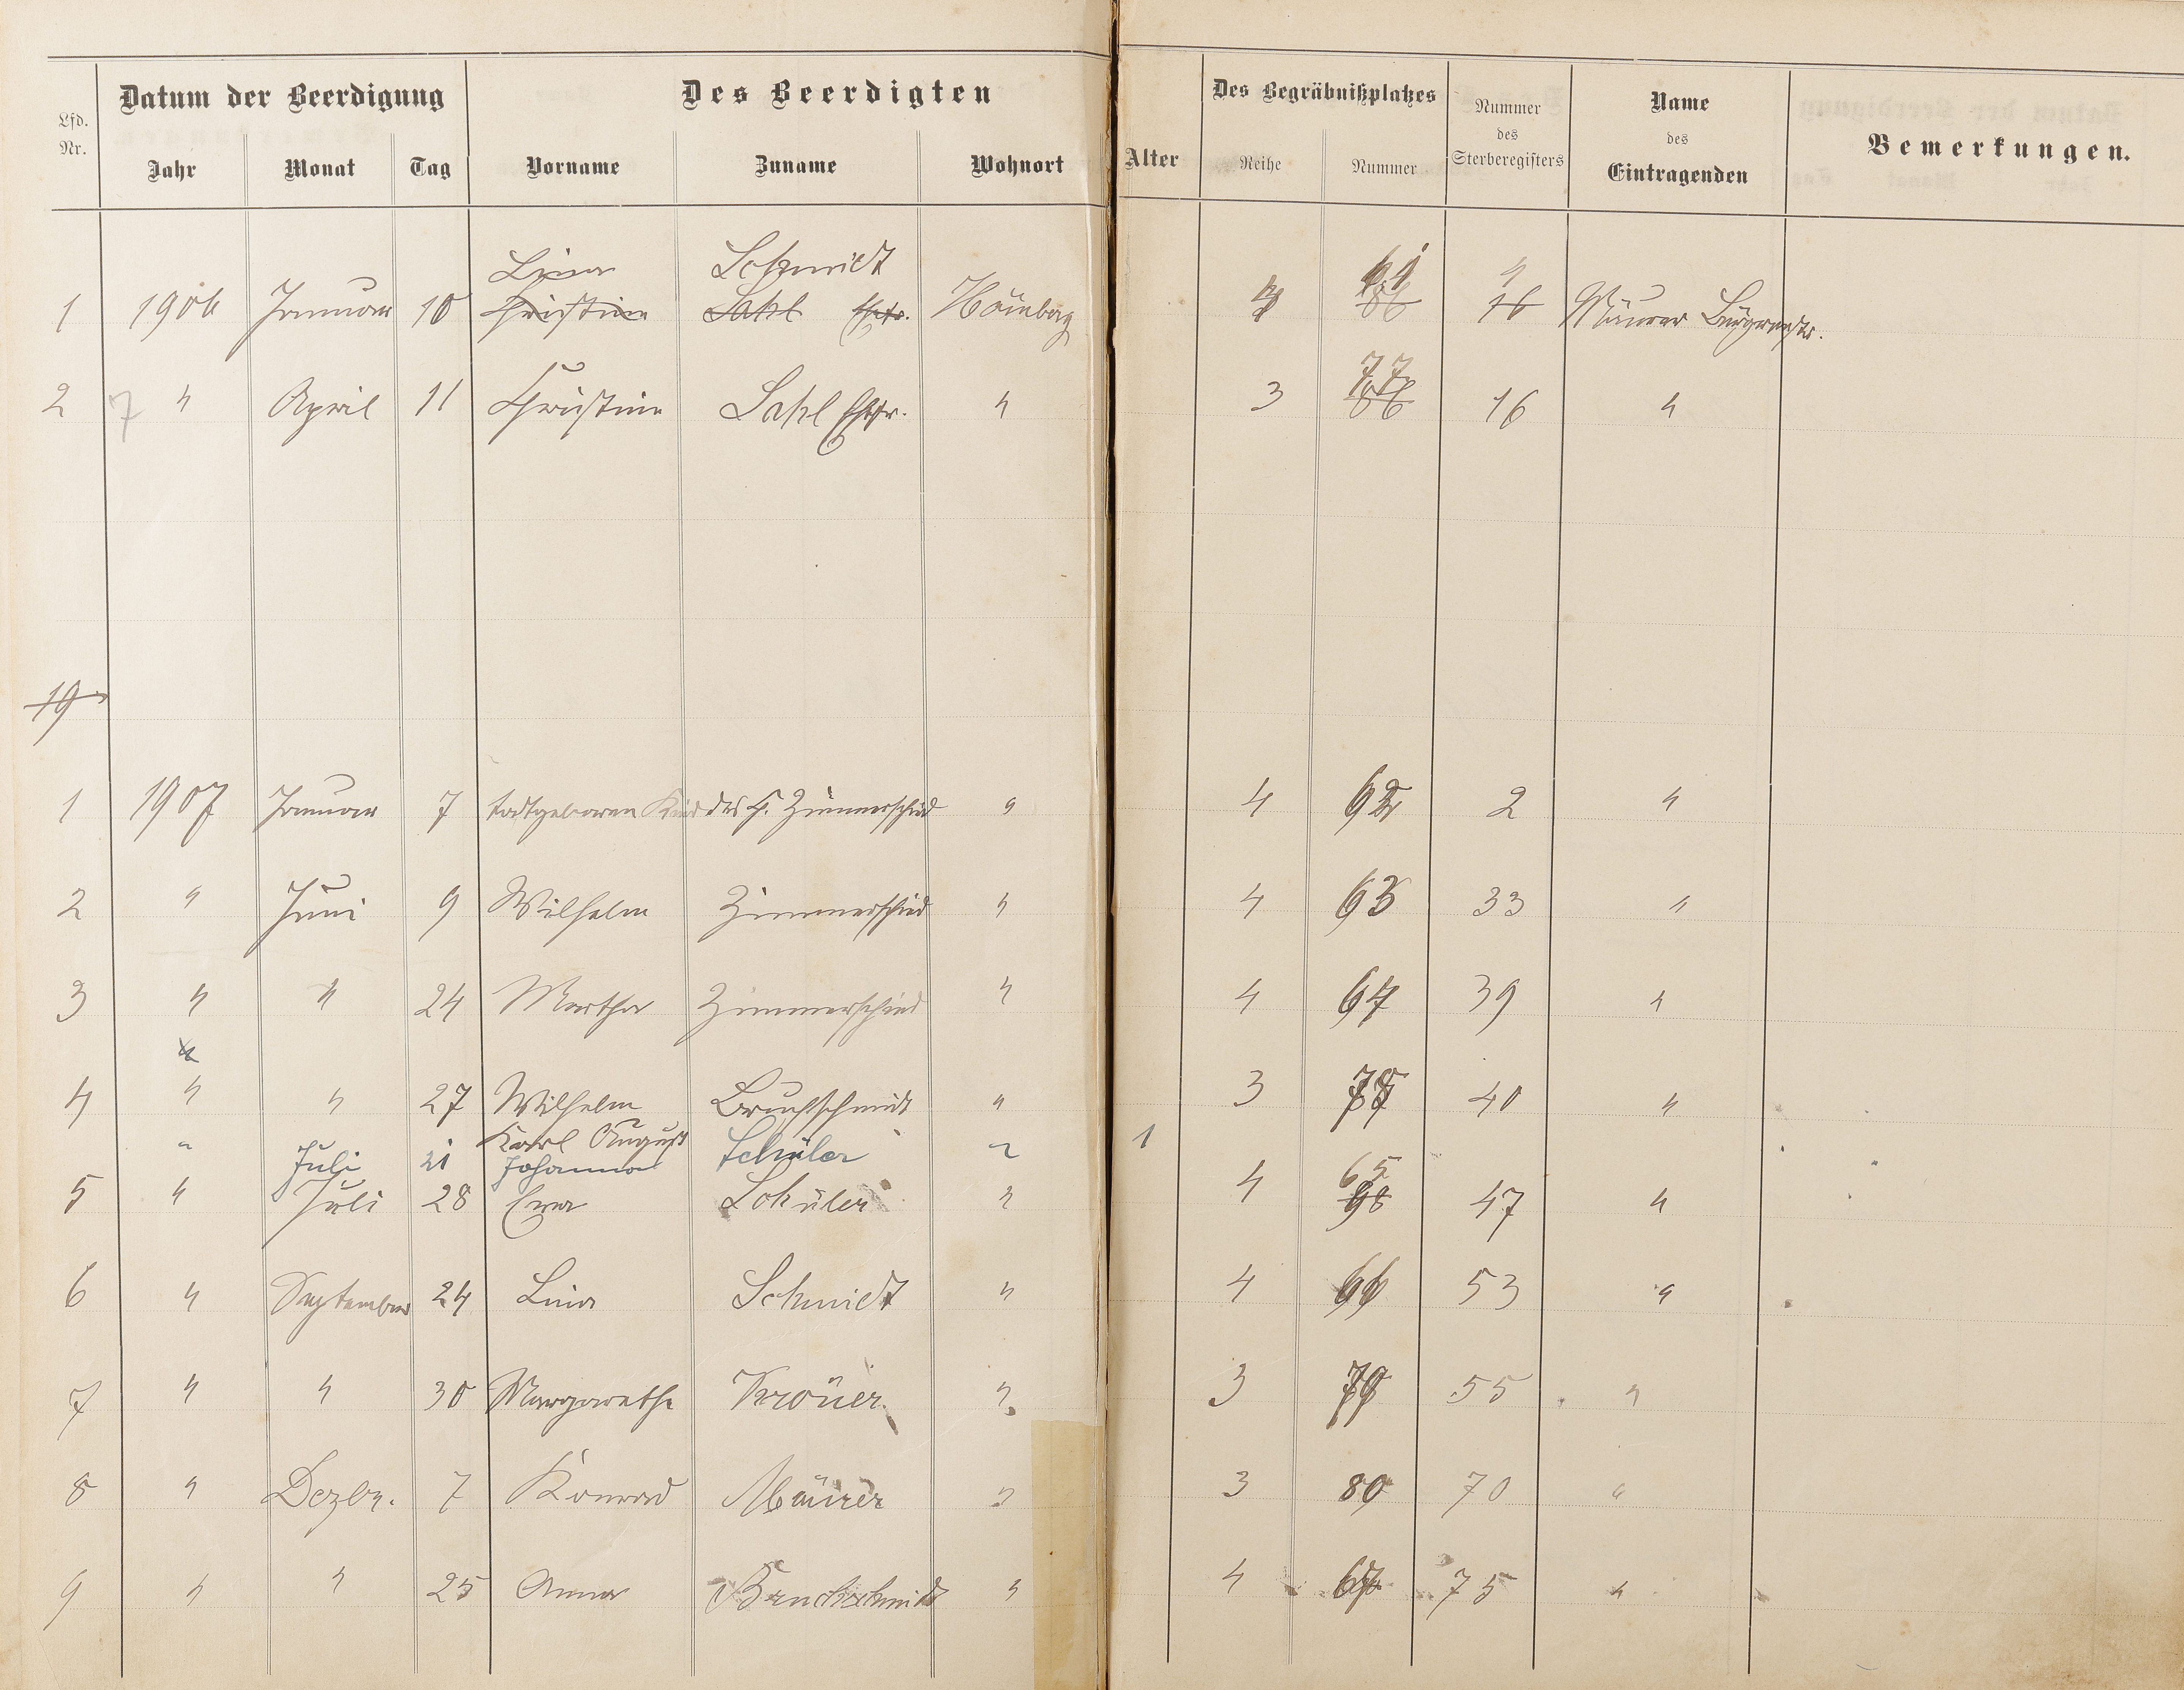 Datum der Beerdigung Des Beerdigten Des Begräbnißplatzes Nummer des Sterberegisters Name des Eintragenden Bemerkungen.
Lfd. Nr. Jahr Monat Tag Vorname Zuname Wohnort Alter Reihe Nummer
Lina Schmidt 61 4
1 1906 Januar 10 Christine Sahl Ehefr. Hömberg 4 86 16 Mäurer Bürgermstr.
77
2 7 " April 11 Christine Sahl Ehefr. " 3 86 16 "
19
1 1907 Januar 7 todtgeborenes Kind des H. Zimmerschied " 4 62 2 "
2 " Juni 9 Wilhelm Zimmerschied " 4 63 33 "
3 " " 24 Martha Zimmerschied " 4 64 39 "
4 " " 27 Wilhelm Bruchschmidt " 3 78 40 "
Karl August
" Juli 21 Johanna Schüler " 1
65
5 " Juli 28 Erna Schüler " 4 98 47 "
6 " September 24 Lina Schmidt " 4 66 53 "
7 " " 30 Margarethe Kroner " 3 79 55 "
8 " Dezbr. 7 Konrad Mäurer " 3 80 70 "
9 " " 25 Anna Bruchschmidt " 4 67 75 "